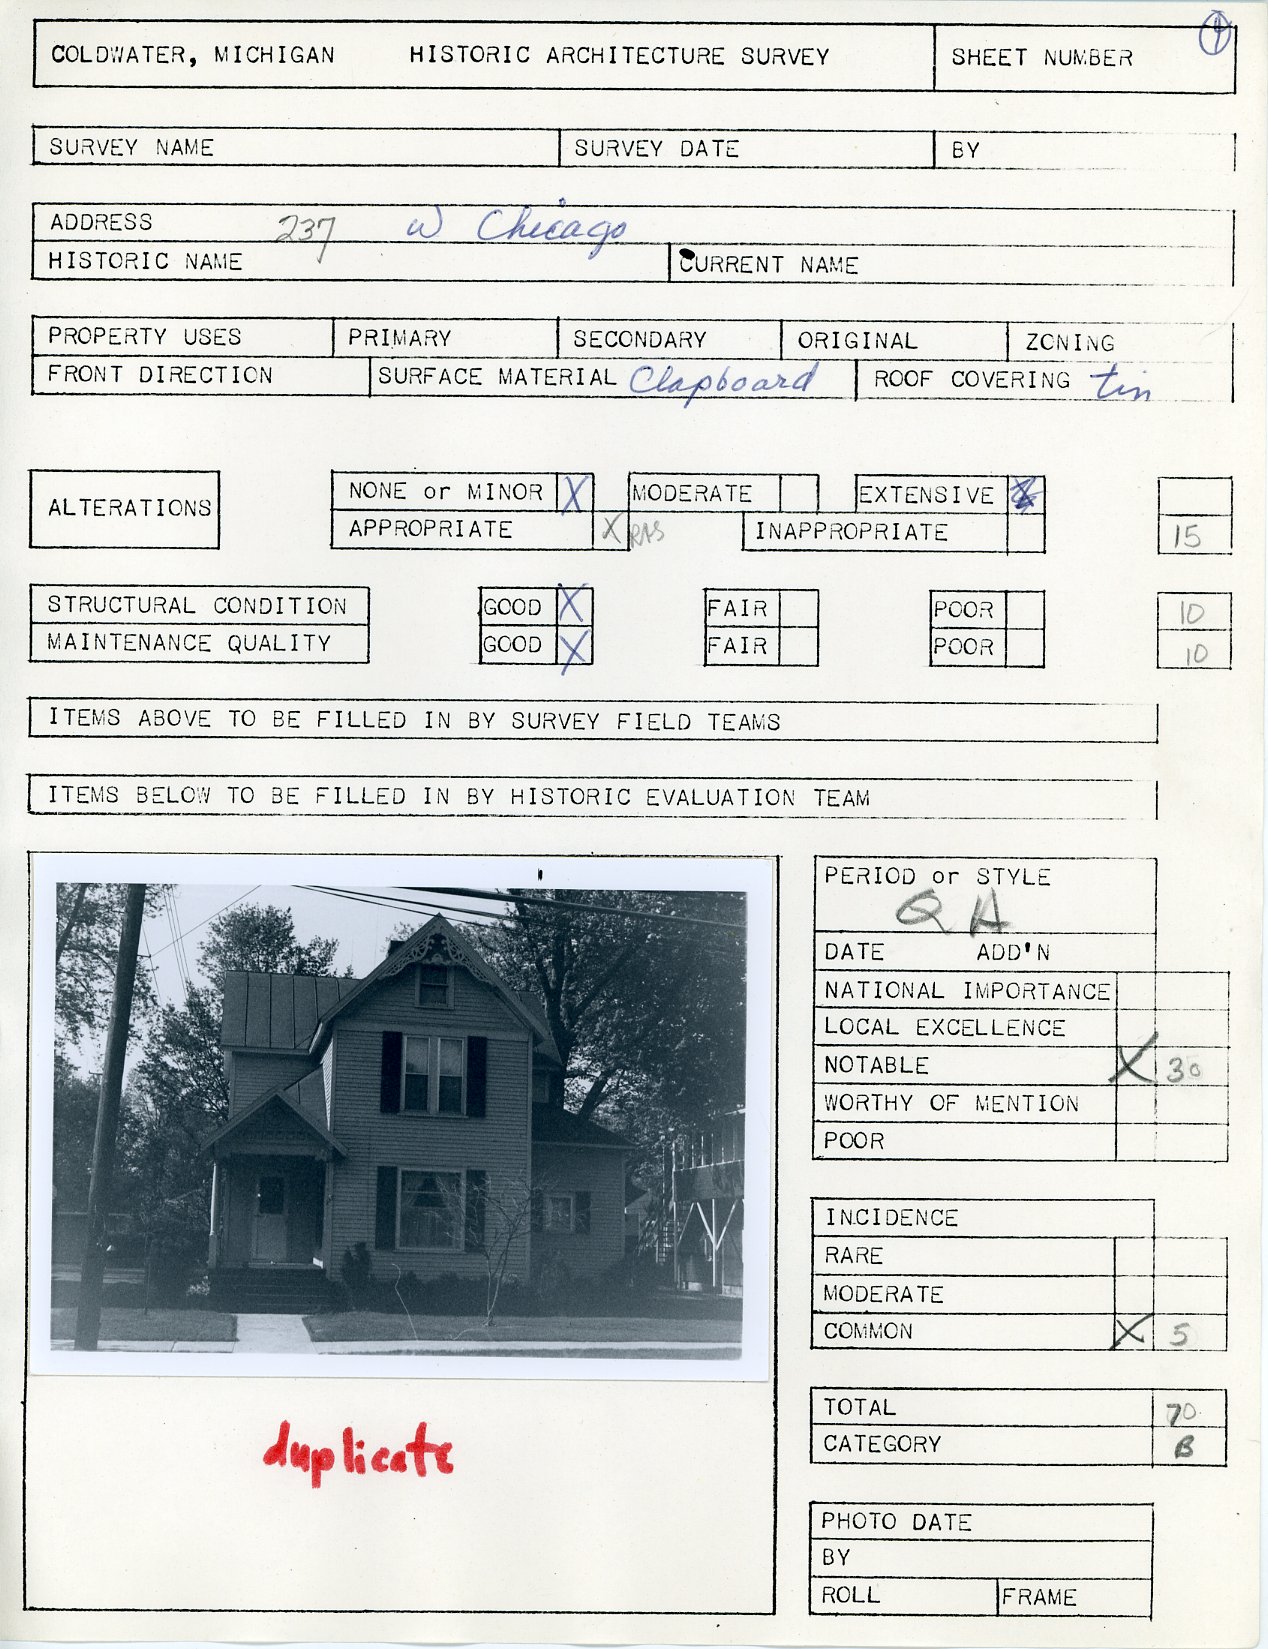 COLDWATER, MICHIGAN HISTORIC ARCHITECTURE SURVEY SHEET NUMBER
SURVEY NAME SURVEY DATE BY
ADDRESS 237 W Chicago
HISTORIC NAME CURRENT NAME
PROPERTY USES PRIMARY SECONDARY ORIGINAL ZONING
FRONT DIRECTION SURFACE MATERIAL Clapboard ROOF COVERING tin
ALTERATIONS NONE or MINOR X MODERATE EXTENSIVE
APPROPRIATE X RAS INAPPROPRIATE 15
STRUCTURAL CONDITION GOOD X FAIR POOR 10
MAINTENANCE QUALITY GOOD X FAIR POOR 10
ITEMS ABOVE TO BE FILLED IN BY SURVEY FIELD TEAMS
ITEMS BELOW TO BE FILLED IN BY HISTORIC EVALUATION TEAM
PERIOD or STYLE
QA
DATE ADD'N
NATIONAL IMPORTANCE
LOCAL EXCELLENCE
NOTABLE X 30
WORTHY OF MENTION
POOR
INCIDENCE
RARE
MODERATE
COMMON X 5
TOTAL 70
CATEGORY B
duplicate
PHOTO DATE
BY
ROLL FRAME